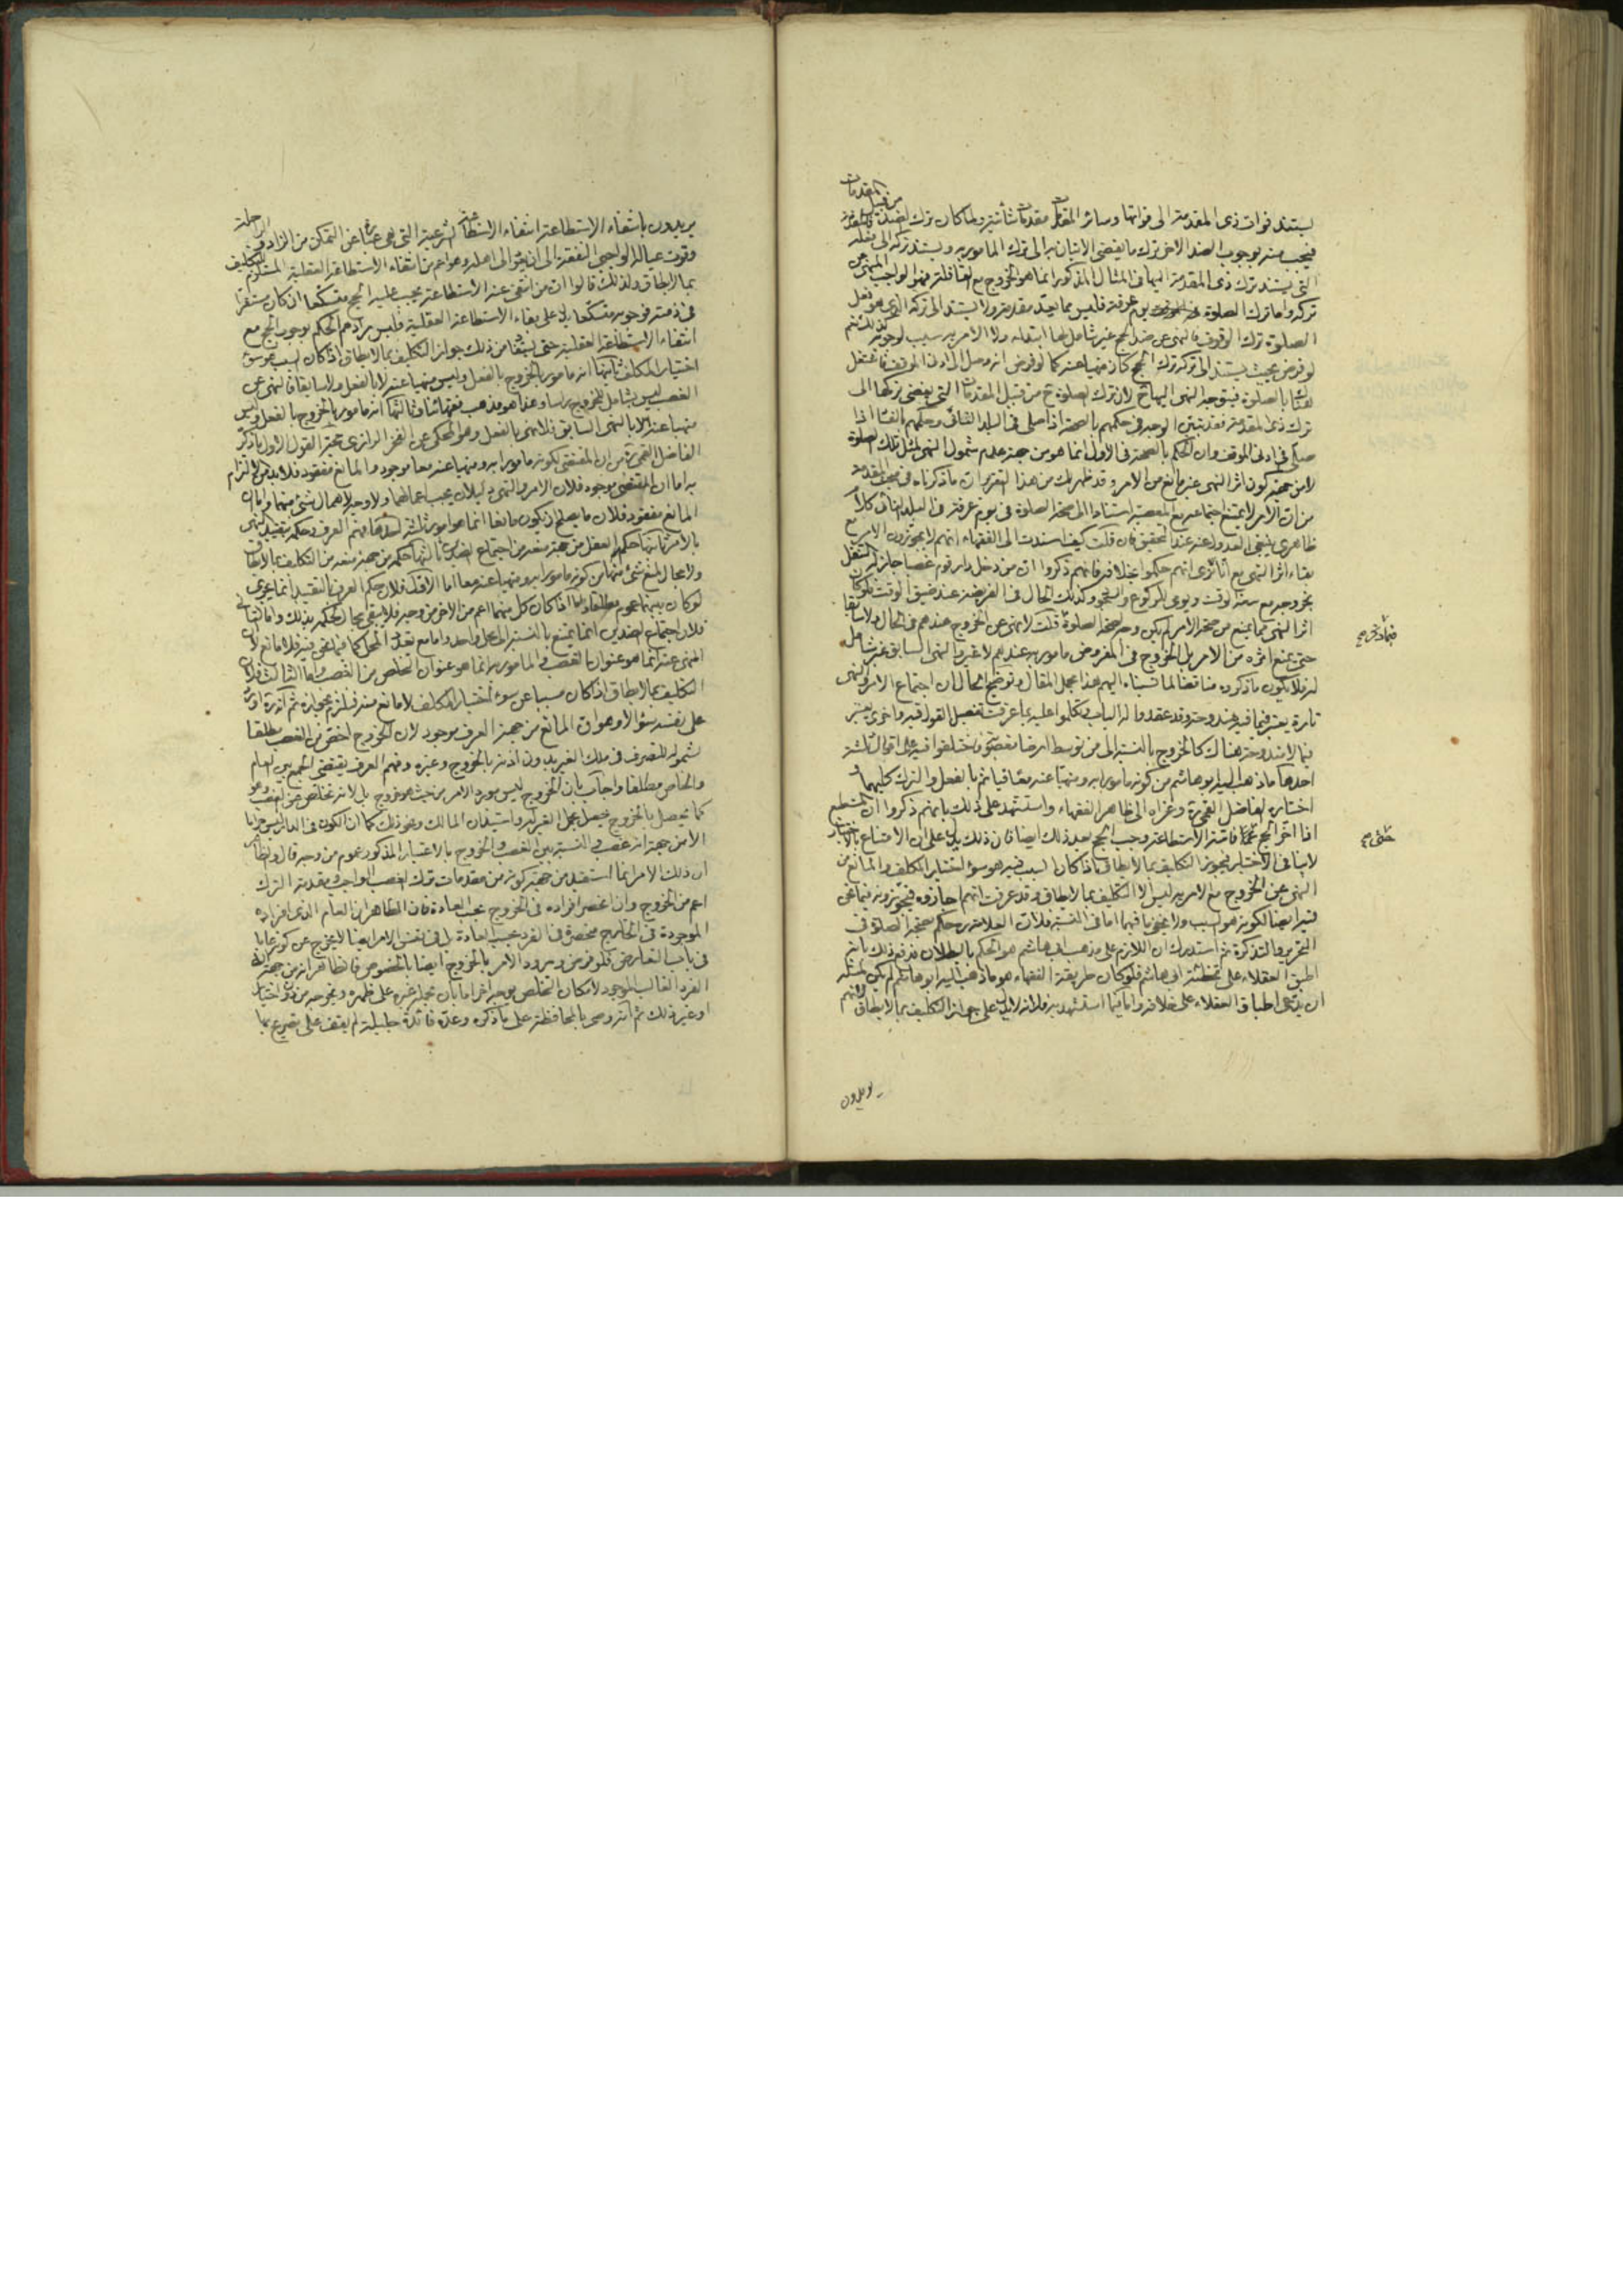 يستند فوات ذى المقدمة الى فواتها وسائر المقدمات مقدمات شأنية ولما كان ترك الضد من قبيل المقدمات
فيجب منه بوجوب الضد الاخر ترك ما يفضى الاتيان به الى ترك المامور به ويستند تركه الى فعله
التى يستند ترك ذى المقدمة اليها فى المثال المذكور انما هو الخروج مع القافلة فهو الواجب المنهى عن
تركه واما ترك الصلوة يوم عرفة فليس مما يعد مقدمة ولا يستند الى تركه الذى هو فعل
الصلوة ترك الوقوف فالنهى عن ضد الحج غير شامل لها
لو فرض بحيث يستند الى تركه ترك الحج كان منهيا عنه كما لو فرض انه وصل الى ادنى الموقف فاشتغل
بالصلوة فيتوجه النهى اليها ح لان ترك الصلوة ح من قبيل المقدمات التى يفضى تركها الى
ترك ذى المقدمة فقد تبين الوجه فى حكمهم بالصحة اذا صلى فى البلد النائى وحكمهم بالفساد اذا
صلى فى ادنى الموقف وان الحكم بالصحة فى الاول انما هو من جهة عدم شمول النهى لمثل تلك الصلوة
لا من جهة كون اثر النهى غير مانع من الامر وقد ظهر لك من هذا التقرير ان ما ذكرناه فى مبحث المقدمة
من ان الامر لا يمتنع اجتماعه مع المعصية استنادا الى صحة الصلوة فى يوم عرفة فى البلد النائى كلام
ظاهرى ينبغى العدول عنه عند التحقيق فان قلت كيف اسندت الى الفقهاء انهم لا يجوزون الامر مع
بقاء اثر النهى مع انا نرى انهم حكموا بخلافه فانهم ذكروا ان من دخل دار قوم غصبا جاز له التنفل
بخروجه مع سعة الوقت ويومى للركوع والسجود وكذلك الحال فى الفريضة عند ضيق الوقت فلو كان
اثر النهى مما يمنع من صحة الامر لم يكن وجه لصحة الصلوة قلت لا نهى عن الخروج عندهم فى الحال ولا سابقا
حتى يمنع اثره من الامر بل الخروج فى المفروض مامور به عندهم لا غير والنهى السابق غير شامل
له فلا يكون ما ذكروه مناقضا لما نسبناه اليهم هذا مجمل المقال وتوضيح الحال ان اجتماع الامر والنهى
تارة يعتبر فيما فيه مندوحة وقد عقدوا له الباب وتكلموا عليه بما عرفت تفصيل القول فيه واخرى يعتبر
فيما لا مندوحة هناك كالخروج بالنسبة الى من توسط ارضا مغصوبة وقد اختلفوا فيه على اقوال ثلثة
احدها ما ذهب اليه ابو هاشم من كونه مامورا به ومنهيا عنه معا فياثم بالفعل والترك كليهما و
اختاره الفاضل القمى ره وعزاه الى ظاهر الفقهاء واستشهد على ذلك بانهم ذكروا ان المستطيع
اذا اخر الحج عمدا فاتته الاستطاعة وجب الحج بعد ذلك ايضا فان ذلك يدل على ان الامتناع بالاختيار
لا ينافى الاختيار فيجوز التكليف بما لا يطاق اذا كان السبب فيه هو سوء اختيار المكلف والمانع من
النهى عن الخروج مع الامر به ليس الا التكليف بما لا يطاق وقد عرفت انهم اجازوه فيجوزونه فيما نحن
فيه ايضا لكونه هو السبب ولا يخفى ما فيهما اما فى النسبة فلان العلامة ره حكم بصحة الصلوة فى
التحرير والتذكرة ثم استدرك ان اللازم على مذهب ابى هاشم هو الحكم بالبطلان فدفع ذلك بانه
اطبق العقلاء على تخطئة ابى هاشم فلو كان طريقة الفقهاء هو ما ذهب اليه ابو هاشم لم يكن لمثله
ان يدعى اطباق العقلاء على خلافه واما فيما استشهد به فلانه لا يدل على جواز التكليف بما لا يطاق لانهم
يريدون
يريدون بانتفاء الاستطاعة انتفاء الاستطاعة الشرعية التى هى عبارة عن التمكن من الزاد والراحلة
وقوت عياله الواجبى النفقة الى ان يؤل الى اهله وهو اعم من انتفاء الاستطاعة العقلية المستلزم للتكليف
بما لا يطاق ولذلك قالوا ان من انتفى عنه الاستطاعة يجب عليه الحج متسكعا ان كان مستقرا
فى ذمته فوجوبه متسكعا يدل على بقاء الاستطاعة العقلية فليس مرادهم الحكم بوجوب الحج مع
انتفاء الاستطاعة العقلية حتى يستفاد من ذلك جواز التكليف بما لا يطاق اذا كان السبب هو سوء
اختيار المكلف ثانيها انه مامور بالخروج بالفعل وليس منهيا عنه لا بالفعل ولا سابقا فالنهى عن
الغصب ليس بشامل للخروج راسا وهذا هو مذهب فقهائنا وثالثها انه مامور بالخروج بالفعل وليس
منهيا عنه الا بالنهى السابق فلا نهى بالفعل وهو المحكى عن الفخر الرازى حجة القول الاول ما ذكره
الفاضل القمى ره من ان المقتضى لكونه مامورا به ومنهيا عنه معا موجود والمانع مفقود فلا بد من الالتزام
به اما ان المقتضى موجود فلان الامر والنهى دليلان يجب اعمالهما ولا وجه لاهمال شئ منهما واما ان
المانع مفقود فلان ما يصلح ان يكون مانعا انما هو امور ثلثة احدها فهم العرف وحكمه بتقييد النهى
بالامر ثانيها حكم العقل من جهة منعه من اجتماع الضدين ثالثها حكمه من جهة منعه من التكليف بما لا يطاق
ولا مجال لمنع شئ منها من كونه مامورا به ومنهيا عنه معا اما الاول فلان حكم العرف بالتقييد انما يجرى
لو كان بينهما عموم مطلقا واما اذا كان كل منهما اعم من الاخر من وجه فلا يبقى مجال لحكمه بذلك واما الثانى
فلان اجتماع الضدين انما يمتنع بالنسبة الى محل واحد واما مع تعدد المحل كما فيما نحن فيه فلا مانع لان
المنهى عنه انما هو عنوان الغصب والمامور به انما هو عنوان التخلص من الغصب واما الثالث فلان
التكليف بما لا يطاق اذا كان مسببا عن سوء اختيار المكلف لا مانع منه فيلزم تجويزه ثم انه ره اورد
على نفسه سؤالا وهو ان المانع من جهة العرف موجود لان الخروج اخص من الغصب مطلقا
لشموله للتصرف فى ملك الغير بدون اذنه بالخروج وغيره وفهم العرف يقتضى الجمع بين العام
والخاص مطلقا واجاب بان الخروج ليس مورد الامر من حيث هو خروج بل لانه تخلص عن الغصب وهو
كما يحصل بالخروج يحصل بحمل الغير له واستيذان المالك ونحو ذلك كما ان الكون فى الدار ليس حراما
الا من جهة انه غصب فالنسبة بين الغصب والخروج بالاعتبار المذكور عموم من وجه قال والظاهر
ان ذلك الامر انما استفيد من جهة كونه من مقدمات ترك الغصب الواجب ومقدمة الترك
اعم من الخروج وان انحصر افراده فى الخروج بحسب العادة فان الظاهر ان العام الذى افراده
الموجودة فى الخارج منحصرة فى الفرد بحسب العادة بل فى نفس الامر ايضا لا يخرج عن كونه عاما
فى باب التعارض فلو فرض ورود الامر بالخروج ايضا بالخصوص فالظاهر انه من جهة انه
الفرد الغالب الموجود لامكان التخلص بوجه اخر اما بان يحمله غيره على ظهره ويخرجه من دون اختياره
او غير ذلك ثم انه وصى بالمحافظة على ما ذكره وعده فائدة جليلة لم يقف على تصريح بها